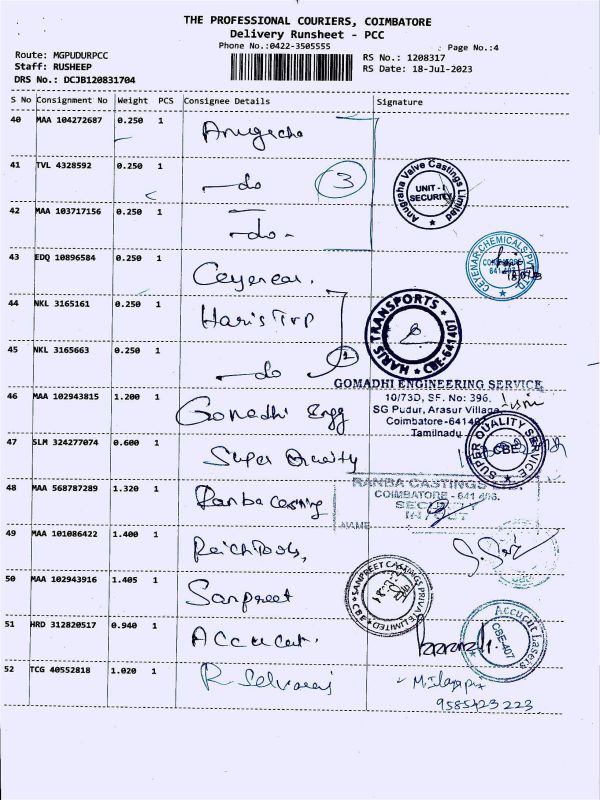 THE PROFESSIONAL COURIERS, COIMBATORE
Delivery Runsheet - PCC
Phone No.:0422-3505555
Page No.:4
Route: MGPUDURPCC
Staff: RUSHEEP
DRS No.: DCJB120831704
RS No.: 1208317
RS Date: 18-Jul-2023
S No Consignment No Weight PCS Consignee Details Signature
40 MAA 104272687 0.250 1 Anugraha
41 TVL 4328592 0.250 1 —do 3
Anugraha Valve Castings Limited
UNIT - I
SECURITY
42 MAA 103717156 0.250 1 —do-
43 EDQ 10896584 0.250 1 Ceyenar.
CEYENAR CHEMICALS PVT LTD
44 NKL 3165161 0.250 1 Haris Trp
HARIS TRANSPORTS
CBE-641407
45 NKL 3165663 0.250 1 —do
GOMADHI ENGINEERING SERVICE
10/73D, SF. No: 396.
SG Pudur, Arasur Village,
Coimbatore-641407
Tamilnadu
46 MAA 102943815 1.200 1 Gomadhi Engg
47 SLM 324277074 0.600 1 Super Quality
SUPER QUALITY SERVICE
CBE
48 MAA 568787289 1.320 1 Ranba casting
RANBA CASTINGS
COIMBATORE - 641
NAME
49 MAA 101086422 1.400 1
50 MAA 102943916 1.405 1 Sanpreet
SANPREET CASTING PRIVATE LIMITED
51 HRD 312820517 0.940 1 Accucut.
Accucut Lasers
CBE-407
52 TCG 40552818 1.020 1 R Selvaraj
9585423 223